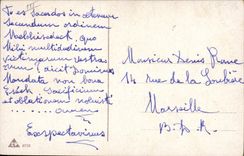 Tu es Sacerdos in aeternum
secundum ordinem
Melchisedek. Quo
Mihi multitudinem
victimarum vestra
rum (dicit Dominus
Mandata non bona
sacrificium
et oblationem noluisti
amen
Exspectavimus
Monsieur Denis
14 rue de la Loubière
Marseille
B. d. R.